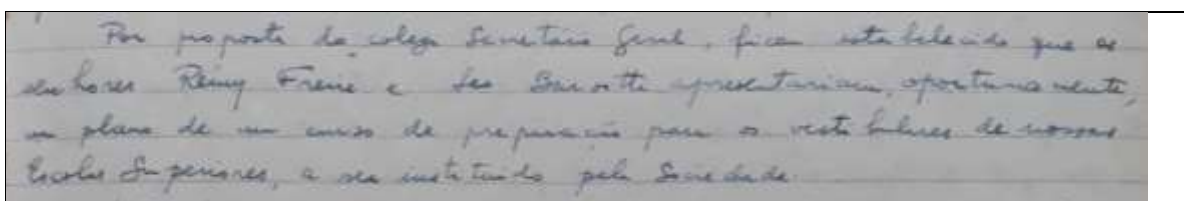 Por proposta do colega Secretário Geral, ficou estabelecido que os
senhores Rémy Freire e Leo Barsotti apresentariam, oportunamente,
um plano de um curso de preparação para os vestibulares de nossas
Escolas Superiores, a ser instituido pela Sociedade.